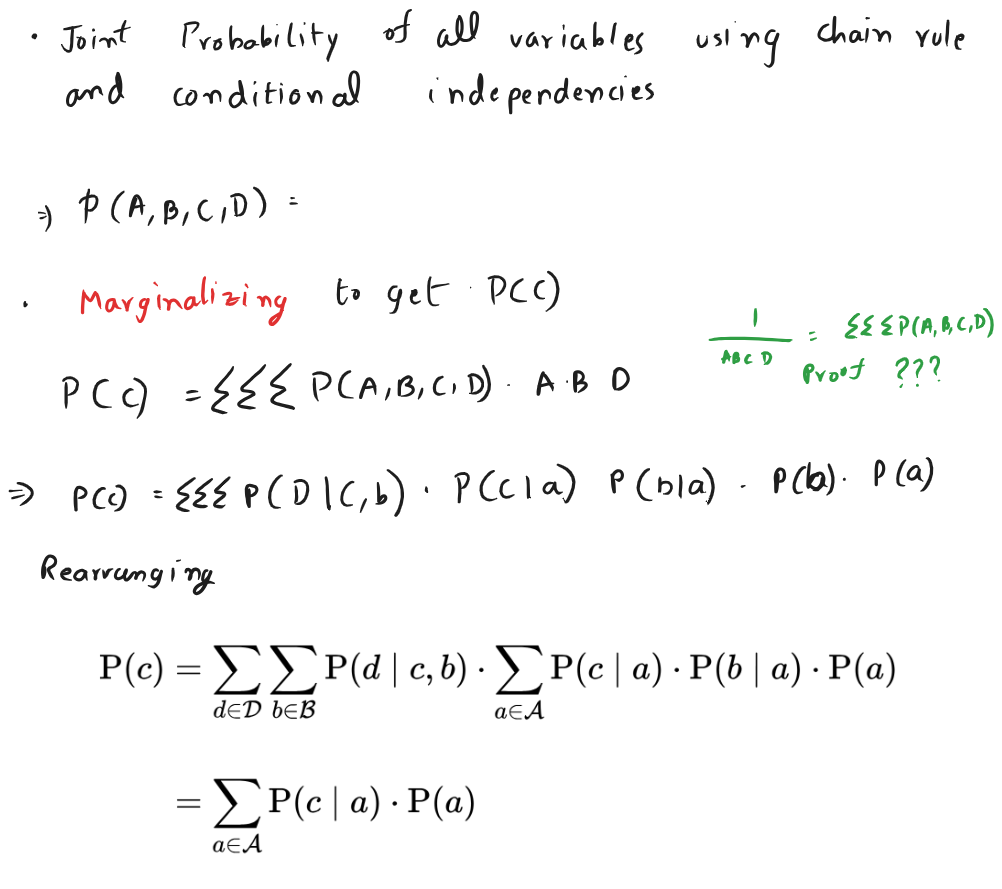 • Joint Probability of all variables using chain rule
and conditional independencies
⇒ P(A,B,C,D) =
• Marginalizing to get P(C)
1/ABCD = ΣΣΣP(A,B,C,D)
Proof ???
P(C) = ΣΣΣ P(A,B,C,D) · A·B D
⇒ P(c) = ΣΣΣ P(D|C,b) · P(c|a) P(b|a) · P(b) · P(a)
Rearranging
P(c) = ∑_{d∈𝒟} ∑_{b∈ℬ} P(d | c, b) · ∑_{a∈𝒜} P(c | a) · P(b | a) · P(a)
= ∑_{a∈𝒜} P(c | a) · P(a)